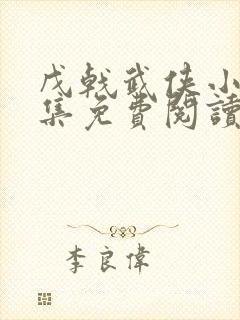 戊戟武俠小
集免費閱讀
李良偉